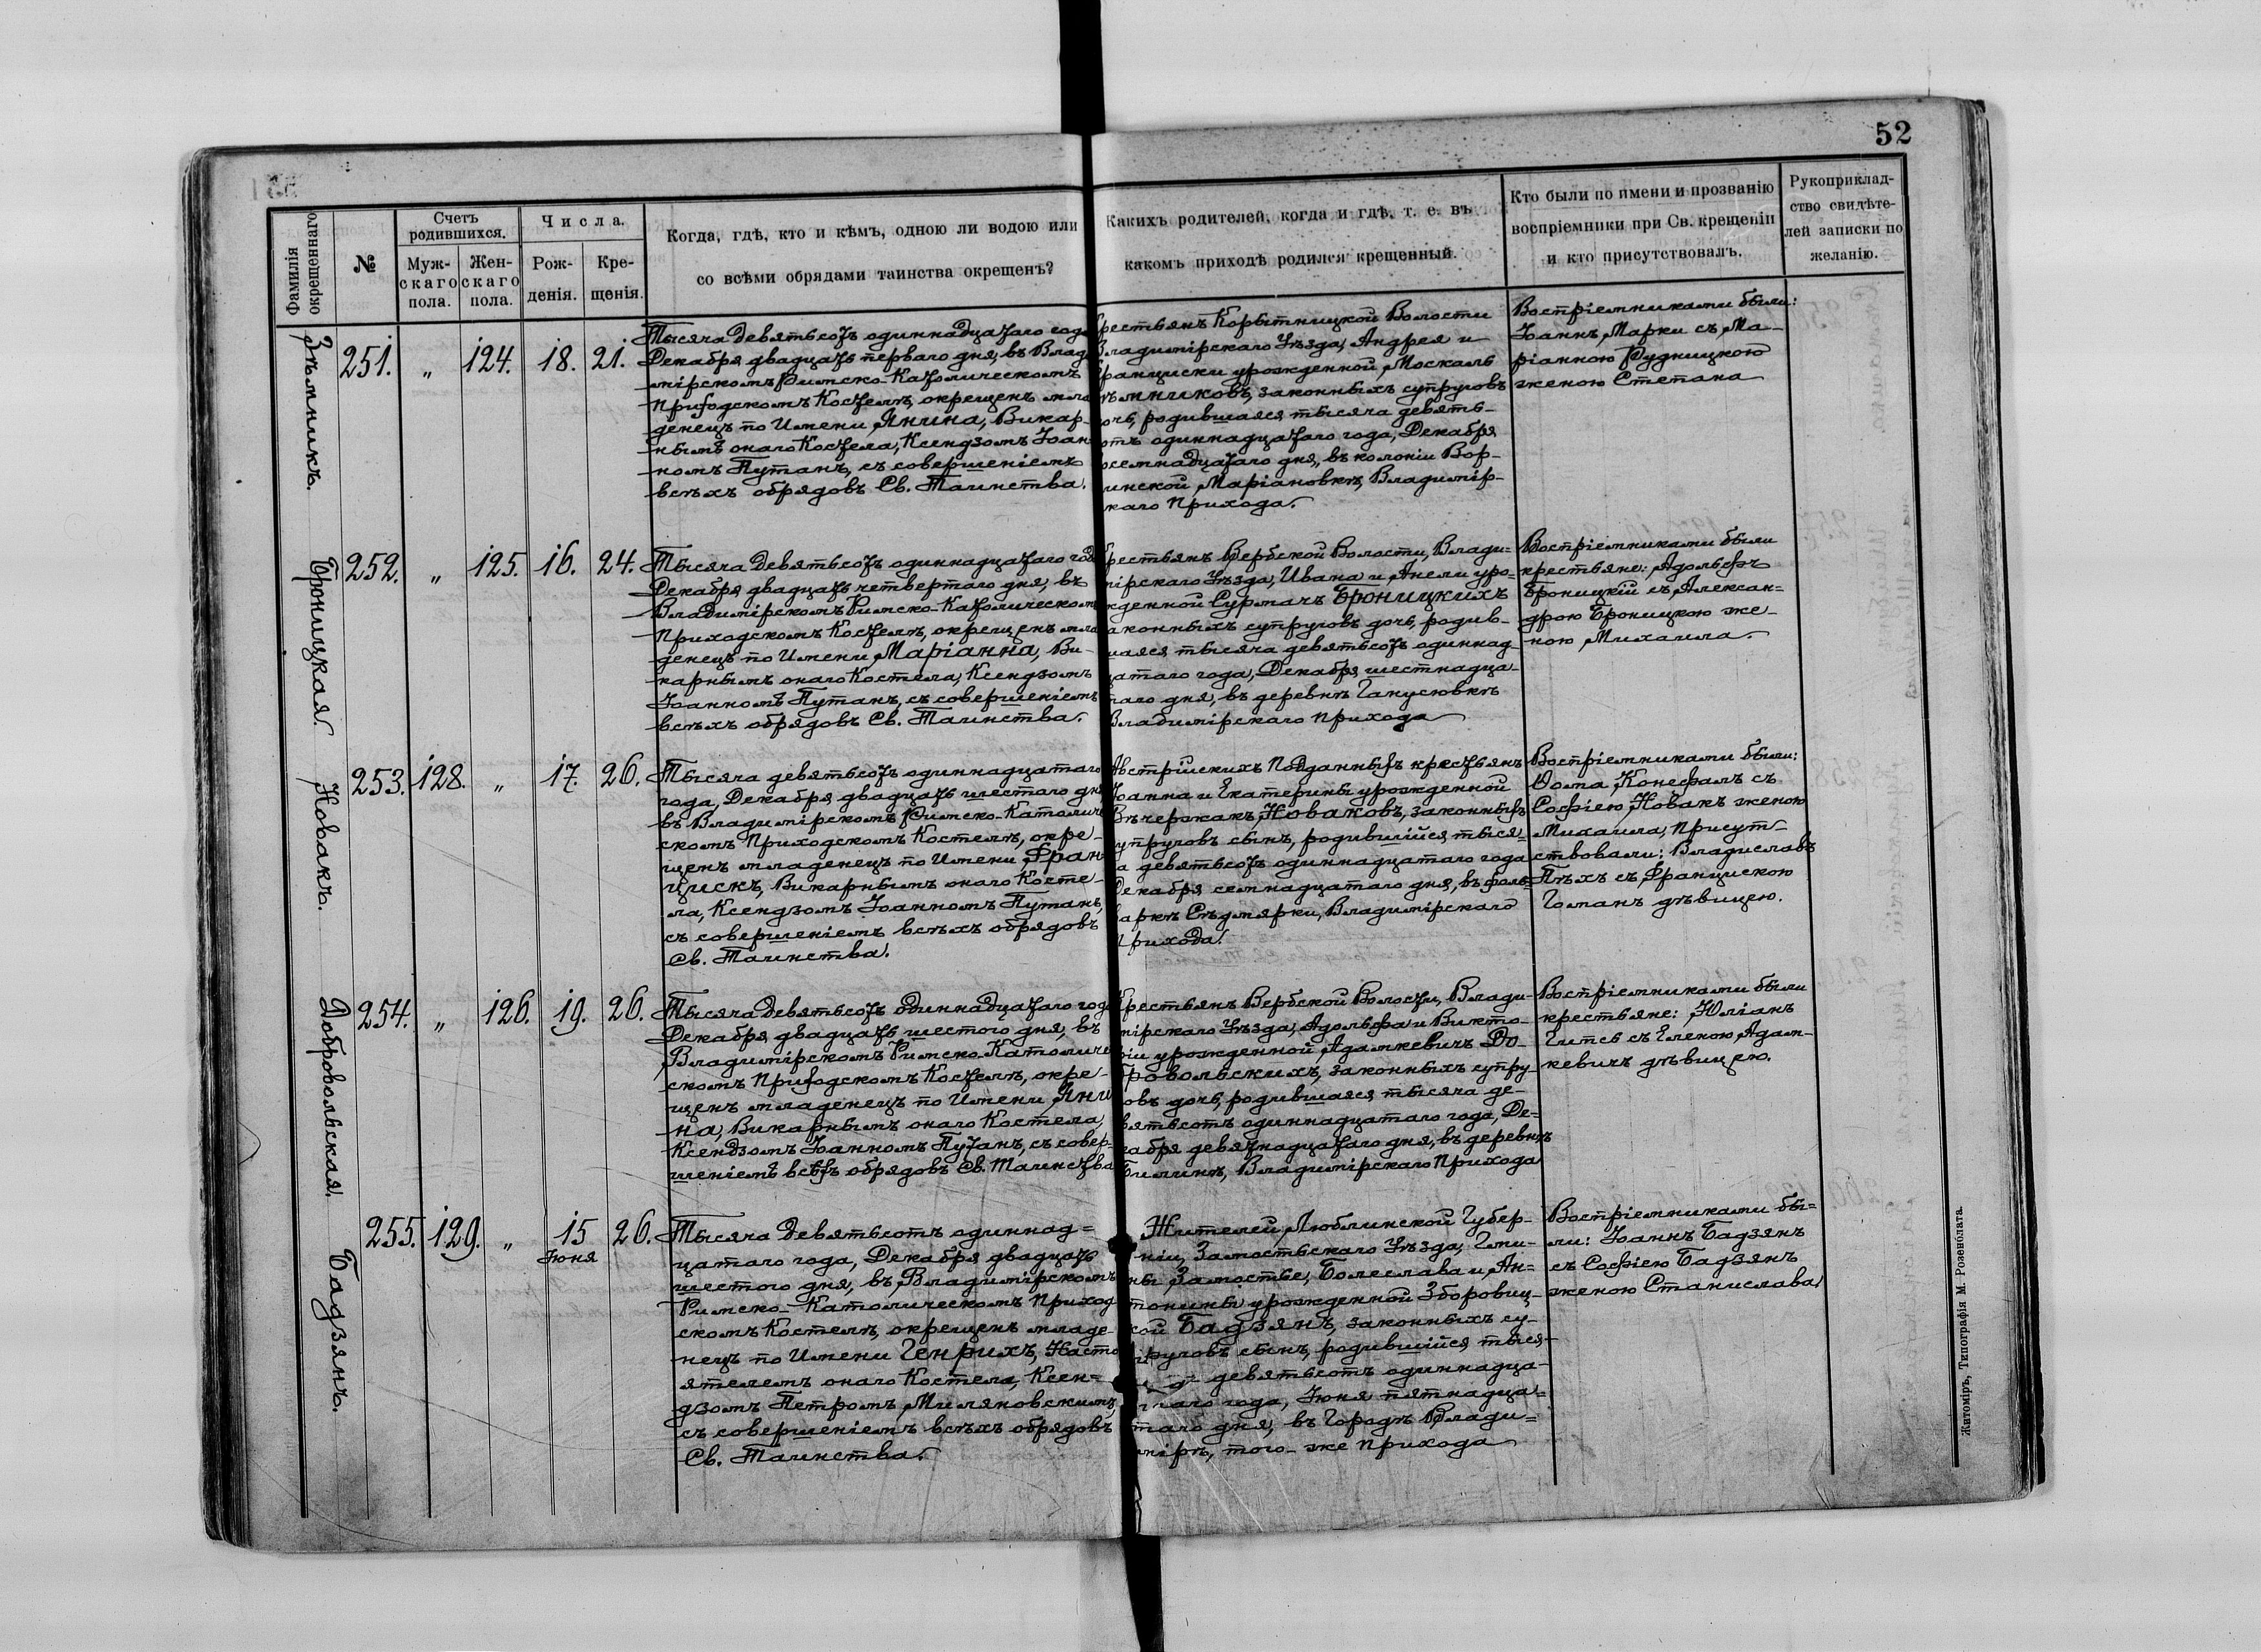 52
Фамилія
окрещеннаго
№
Счетъ
родившихся.
Муж-
скаго
пола.
Жен-
скаго
пола.
Числа.
Рож-
денія.
Кре-
щенія.
Когда, гдѣ, кто и кѣмъ, одною ли водою или
со всѣми обрядами таинства окрещенъ?
Какихъ родителей, когда и гдѣ, т. е. въ
какомъ приходѣ родился крещенный.
Кто были по имени и прозванію
воспріемники при Св. крещеніи
и кто присутствовалъ.
Рукоприклад-
ство свидѣте-
лей записки по
желанію.
Зѣмникъ.
251. „ 124. 18. 21.
Тысяча девятьсотъ одиннадцатаго года
Декабря двадцать перваго дня, въ Влади
мірскомъ Римско-Католическомъ
Приходскомъ Костелѣ, окрещенъ мла
денецъ по Имени Янина, Викар-
нымъ онаго Костела, Ксендзомъ Іоан
номъ Путанъ, съ совершеніемъ
всѣхъ обрядовъ Св. Таинства.
рестьянъ Корытницкой Волости
Владимірскаго Уѣзда, Андрея и
Франциски урожденной Москаль
ѣмниковъ, законныхъ супруговъ
очь, родившаяся тысяча девять-
отъ одиннадцатаго года, Декабря
осемнадцатаго дня, въ колоніи Вор-
инской Маріановкѣ, Владимір-
скаго Прихода.
Воспріемниками были:
Іоаннъ Марки съ Ма-
ріанною Рудницкою
женою Степана
Броницкая.
252. „ 125. 16. 24.
Тысяча девятьсотъ одиннадцатаго года
Декабря двадцать четвертаго дня, въ
Владимірскомъ Римско-Католическомъ
Приходскомъ Костелѣ, окрещенъ мла
денецъ по Имени Маріанна, Ви-
карнымъ онаго Костела, Ксендзомъ
Іоанномъ Путанъ, съ совершеніемъ
всѣхъ обрядовъ Св. Таинства.
рестьянъ Вербской Волости, Влади=
мірскаго Уѣзда, Ивана и Анели уро=
жденной Сурмачъ Броницкихъ
аконныхъ супруговъ дочь, родив-
шаяся тысяча девятьсотъ одиннад-
цатаго года, Декабря шестнадца-
таго дня, въ деревнѣ Ганусювкѣ
Владимірскаго прихода
Воспріемниками были
крестьяне: Адольфъ
Броницкій съ Алексан=
дрою Броницкою же-
ною Михаила.
Новакъ.
253. 128. „ 17. 26.
Тысяча девятьсотъ одиннадцатаго
года, Декабря двадцать шестаго дня
въ Владимірскомъ Римско-Католиче
скомъ Приходскомъ Костелѣ, окре-
щенъ младенецъ по Имени Фран
цискъ, Викарнымъ онаго Косте-
ла, Ксендзомъ Іоанномъ Путанъ,
съ совершеніемъ всѣхъ обрядовъ
Св. Таинства.
Австрійскихъ Подданныхъ крестьянъ
Іоанна и Екатерины урожденной
Вѣчержакъ, Новаковъ, законныхъ
упруговъ сынъ, родившійся тыся=
а девятьсотъ одиннадцатаго года
Декабря семнадцатаго дня, въ фоль=
варкѣ Сѣдмярки, Владимірскаго
Прихода.
Воспріемниками были:
Ѳома Конефалъ съ
Софіею Новакъ женою
Михаила, Присут-
ствовали: Владиславъ
Пѣхъ съ Францискою
Гоманъ дѣвицею.
Добровольская.
254. „ 126. 19. 26.
Тысяча девятьсотъ одиннадцатаго года
Декабря двадцать шестого дня, въ
Владимірскомъ Римско-Католиче
скомъ Приходскомъ Костелѣ, окре-
щенъ младенецъ по Имени Яни
на, Викарнымъ онаго Костела,
Ксендзомъ Іоанномъ Путанъ, съ совер-
шеніемъ всѣхъ обрядовъ Св. Таинства
Крестьянъ Вербской Волости, Влади-
мірскаго Уѣзда, Адольфа и Викто-
ріи урожденной Адамкевичъ До-
бровольскихъ, законныхъ супру-
овъ дочь, родившаяся тысяча де-
вятьсотъ одиннадцатаго года, Де=
кабря девятнадцатаго дня, въ деревнѣ
Билинѣ, Владимірскаго Прихода
Воспріемниками были
крестьяне: Юліанъ
Гитсъ съ Еленою Адам-
кевичъ дѣвицею.
Бадзянъ.
255. 129. „ 15 26.
Іюня
Тысяча девятьсотъ одиннад=
цатаго года, Декабря двадцать
шестого дня, въ Владимірскомъ
Римско-Католическомъ Приход
скомъ Костелѣ, окрещенъ младе-
нецъ по Имени Генрихъ, Насто
ятелемъ онаго Костела, Ксен=
дзомъ Петромъ Миляновскимъ,
съ совершеніемъ всѣхъ обрядовъ
Св. Таинства.
Жителей Люблинской Губер-
ніи, Замостьскаго Уѣзда, Гми-
ны Замостье, Болеслава и Ан=
тонины урожденной Зборовиц-
кой Бадзянъ, законныхъ су-
пруговъ сынъ, родившійся тыся-
девятьсотъ одиннадца-
таго года, Іюня пятнадца=
таго дня, въ Городѣ Влади=
мірѣ, того-же прихода
Воспріемниками бы=
ли: Іоаннъ Бадзянъ
съ Софіею Бадзянъ
женою Станислава
Житоміръ, Типографія М. Розенблата.